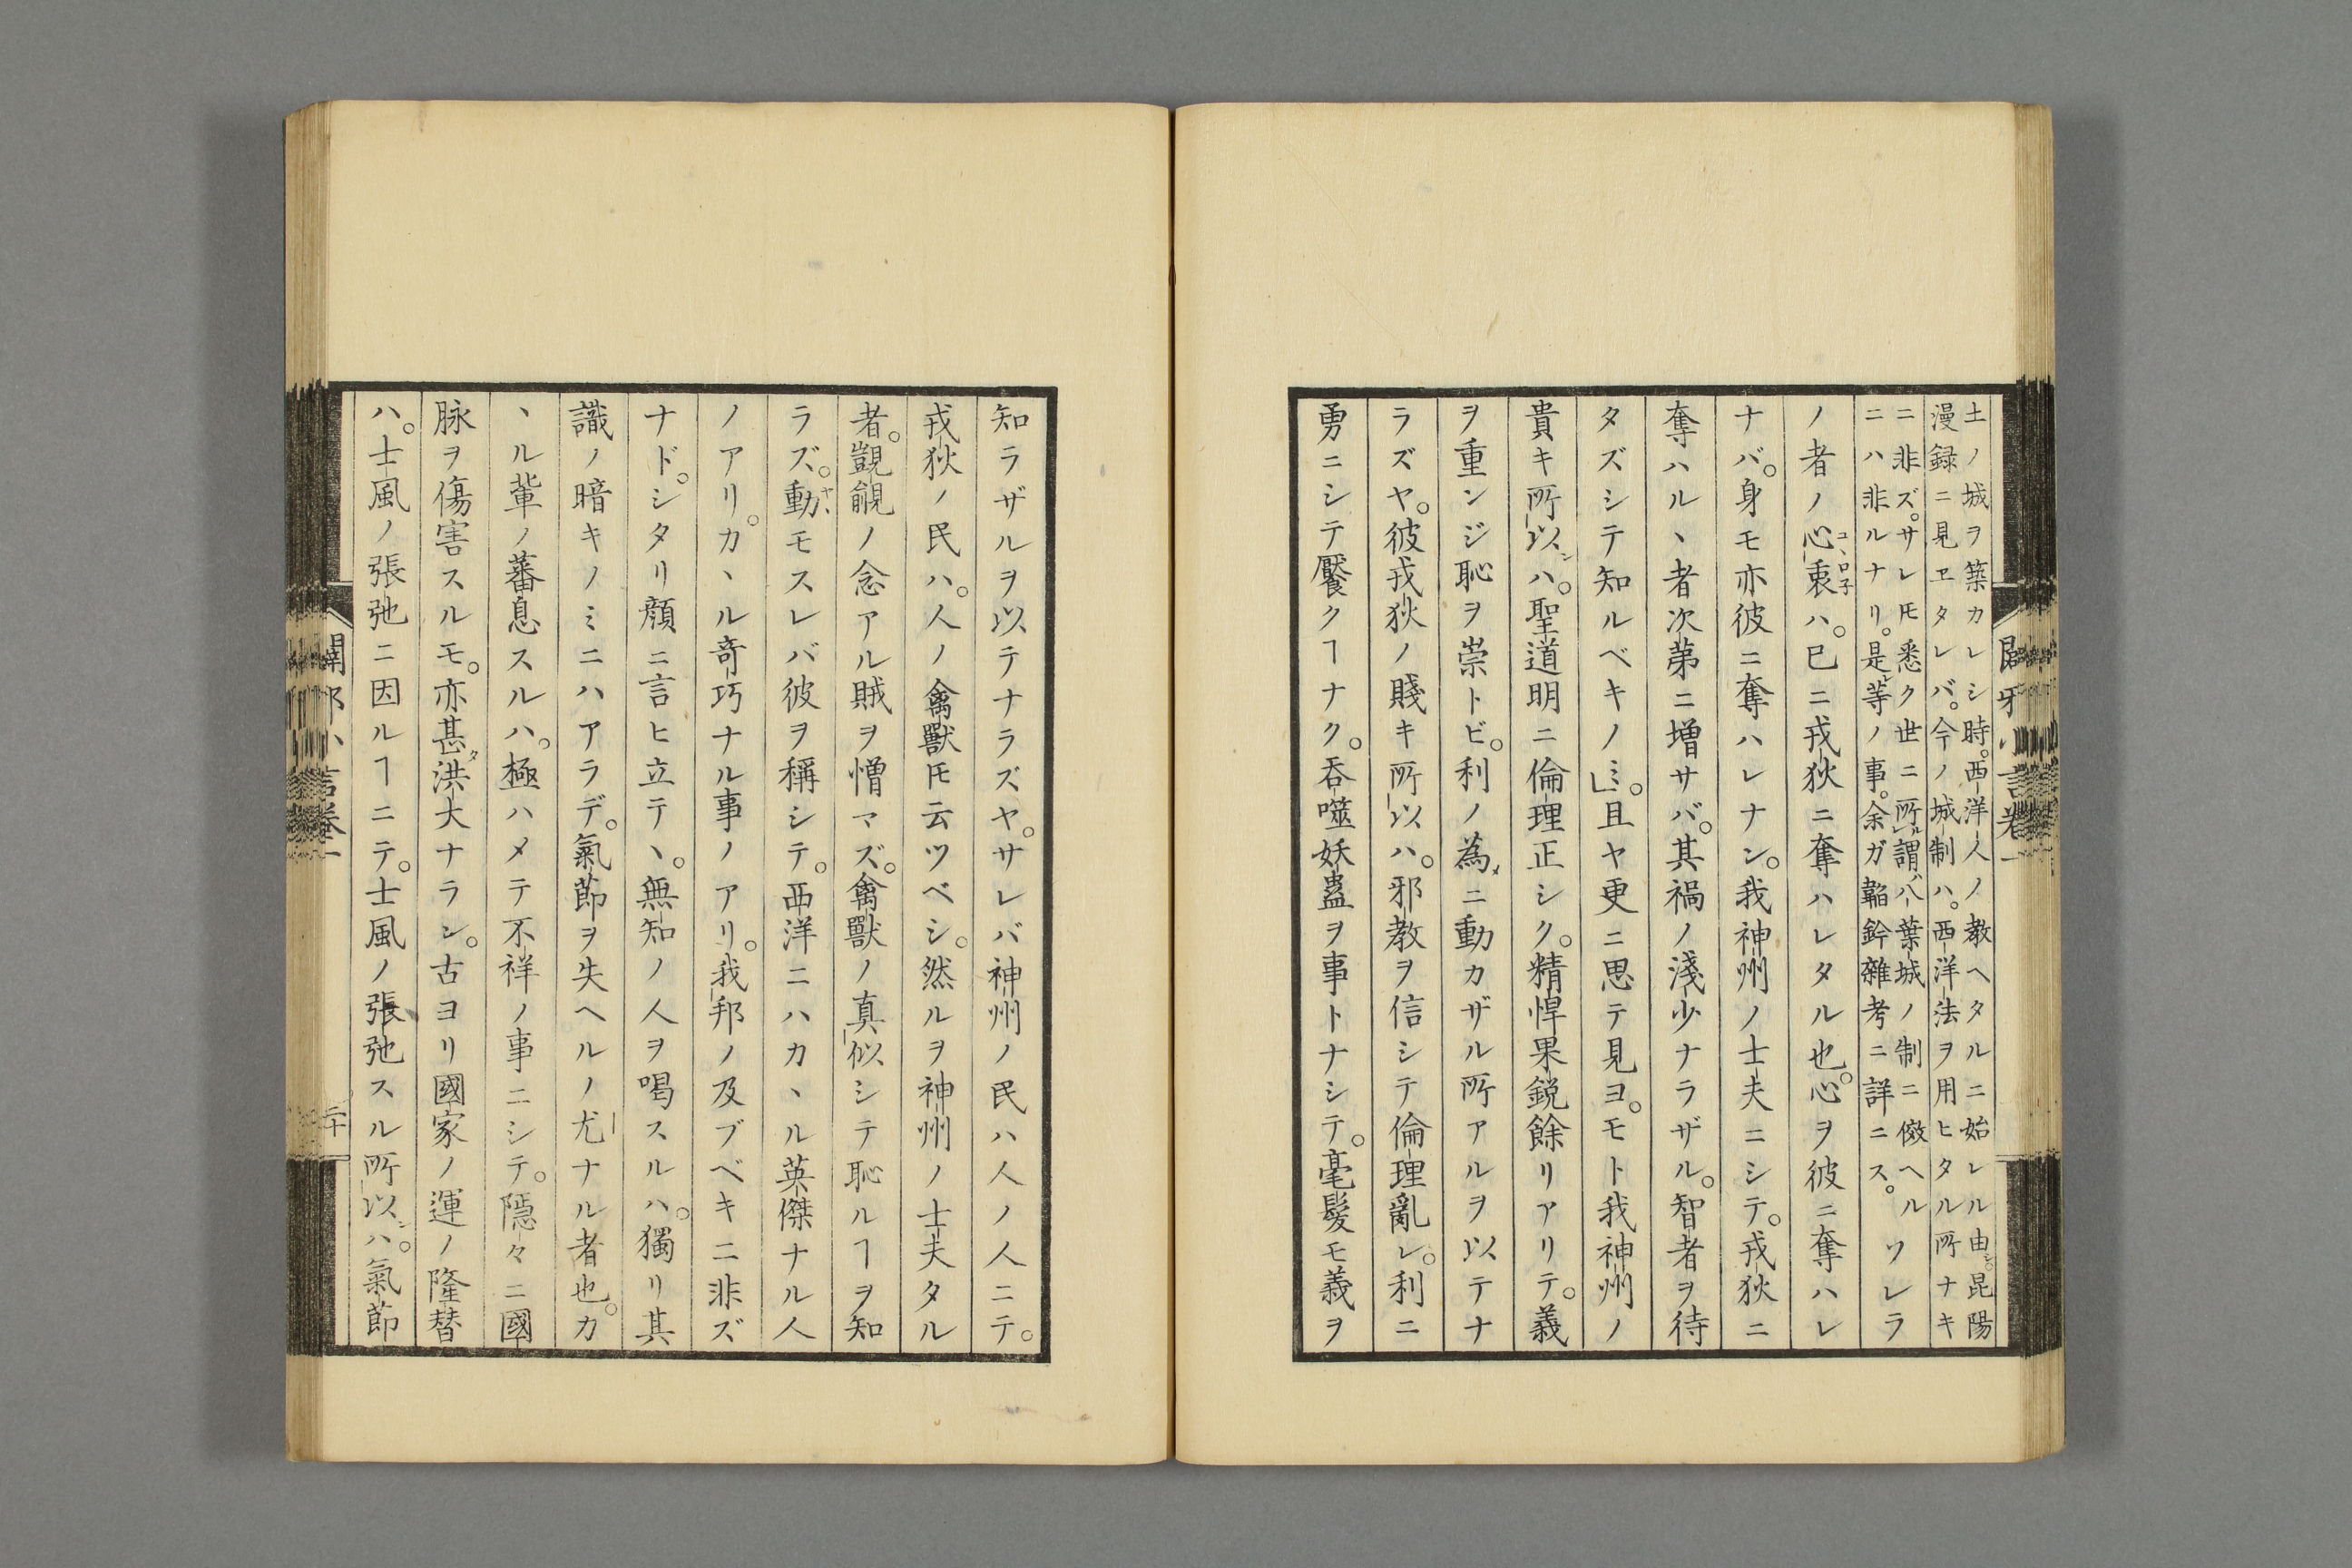 土ノ城ヲ築カレシ時。西洋人ノ教ヘタルニ始レル由シ。昆陽
漫録ニ見ヱタレバ。今ノ城制ハ。西洋法ヲ用ヒタル所ナキ
ニ非ズ。サレ𪜈悉ク世ニ所ル謂ハ八葉城ノ制ニ傚ヘル
ニハ非ルナリ。是レ等ノ事。余ガ韜鈐雜考ニ詳ニス。
ワレラ
ノ者ノ心衷ハ。巳ニ戎狄ニ奪ハレタル也。心ヲ彼ニ奪ハレ
コヽロ子
ナバ。身モ亦彼ニ奪ハレナン。我神州ノ士夫ニシテ。戎狄ニ
奪ハルヽ者次第ニ増サバ。其禍ノ淺少ナラザル。智者ヲ待
タズシテ知ルベキノミ。」且ヤ更ニ思テ見ヨ。モト我神州ノ
貴キ所以シハ。聖道明ニ倫理正シク。精悍果鋭餘リアリテ。義
ヲ重ンジ恥ヲ崇トビ。利ノ為メニ動カザル所アルヲ以テナ
ラズヤ。彼戎狄ノ賤キ所以ハ。邪教ヲ信シテ倫理亂レ。利ニ
勇ニシテ饜クヿナク。呑噬妖蠱ヲ事トナシテ。毫髮モ義ヲ
知ラザルヲ以テナラズヤ。サレバ神州ノ民ハ人ノ人ニテ。
戎狄ノ民ハ。人ノ禽獸𪜈云ツベシ。然ルヲ神州ノ士夫タル
者。覬覦ノ念アル賊ヲ憎マズ。禽獸ノ真似シテ恥ルヿヲ知
ラズ。動モスレバ彼ヲ稱シテ。西洋ニハカヽル英傑ナル人
ヤヽ
ノアリ。カヽル奇巧ナル事ノアリ。我邦ノ及ブベキニ非ズ
ナド。シタリ顔ニ言ヒ立テヽ。無知ノ人ヲ喝スルハ。獨リ其
識ノ暗キノミニハアラデ。氣節ヲ失ヘルノ尤ナル者也。カ
ヽル輩ノ蕃息スルハ。極ハメテ不祥ノ事ニシテ。隱々ニ國
脉ヲ傷害スルモ。亦甚タ洪大ナラシ。古ヨリ國家ノ運ノ隆替
ハ。士風ノ張弛ニ因ルヿニテ。士風ノ張弛スル所以シハ。氣節
闢邪小言卷一
二十